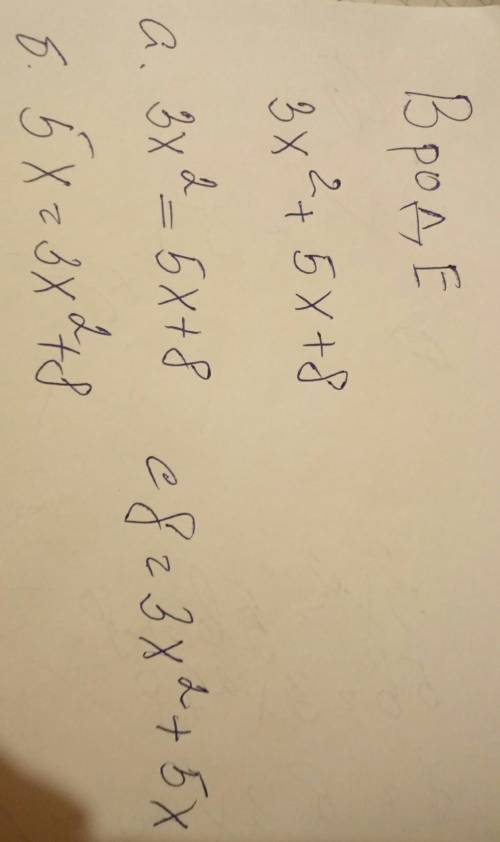 ВродЕ
3x² + 5x + 8
а. 3x² = 5x + 8
с 8 = 3x² + 5x
б. 5x = 3x² + 8